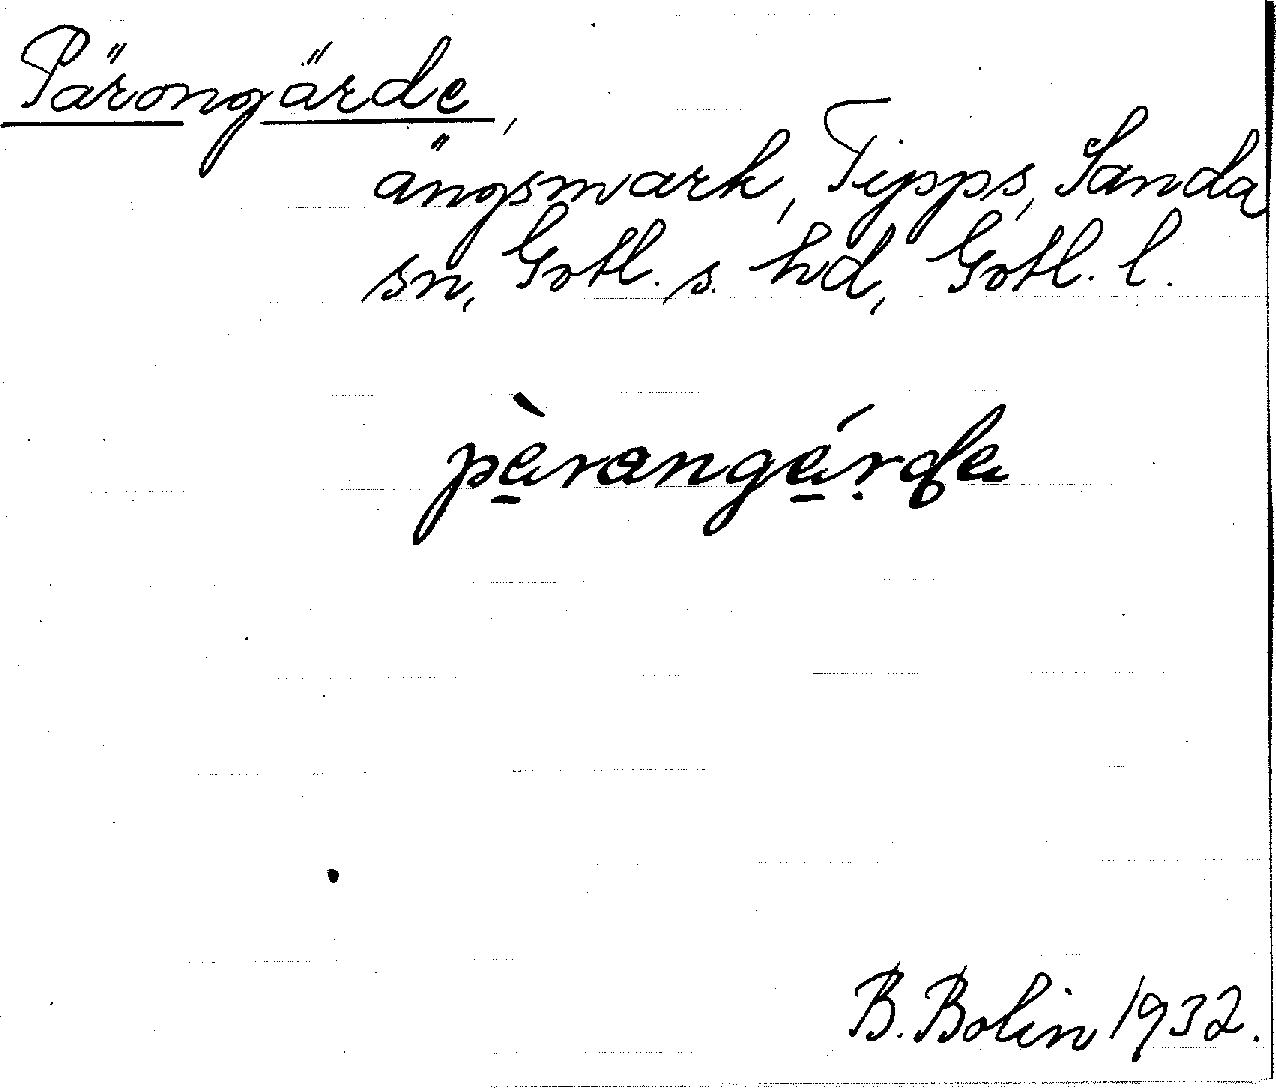 Pärongärde,
ängsmark, Tipps, Sanda
sn, Gotl. s. hd, Gotl. l.
pàrangárda
B. Bolin 1932.